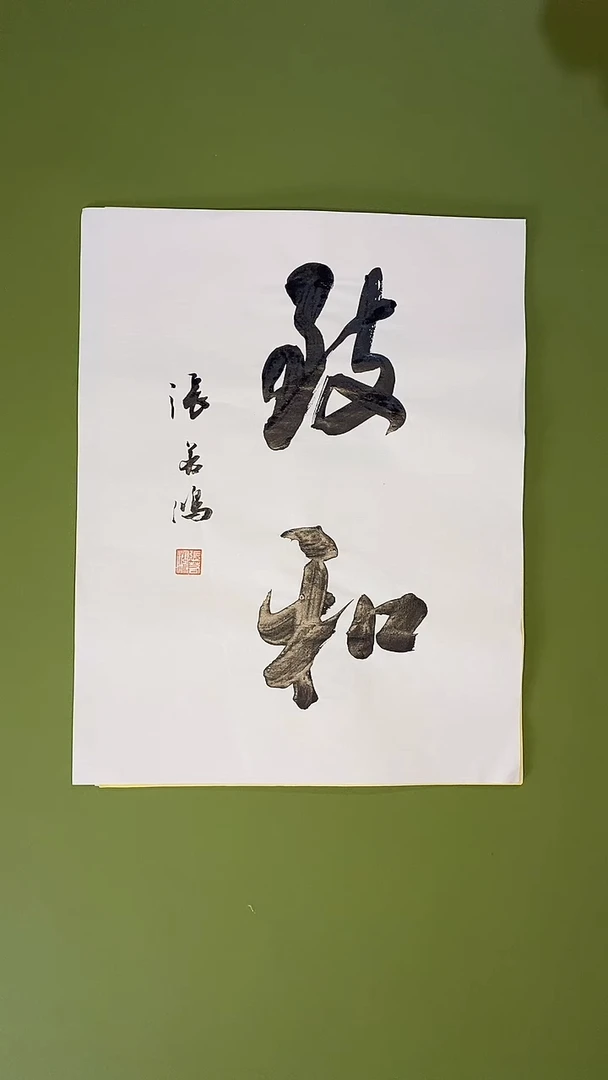 致和
張若鴻